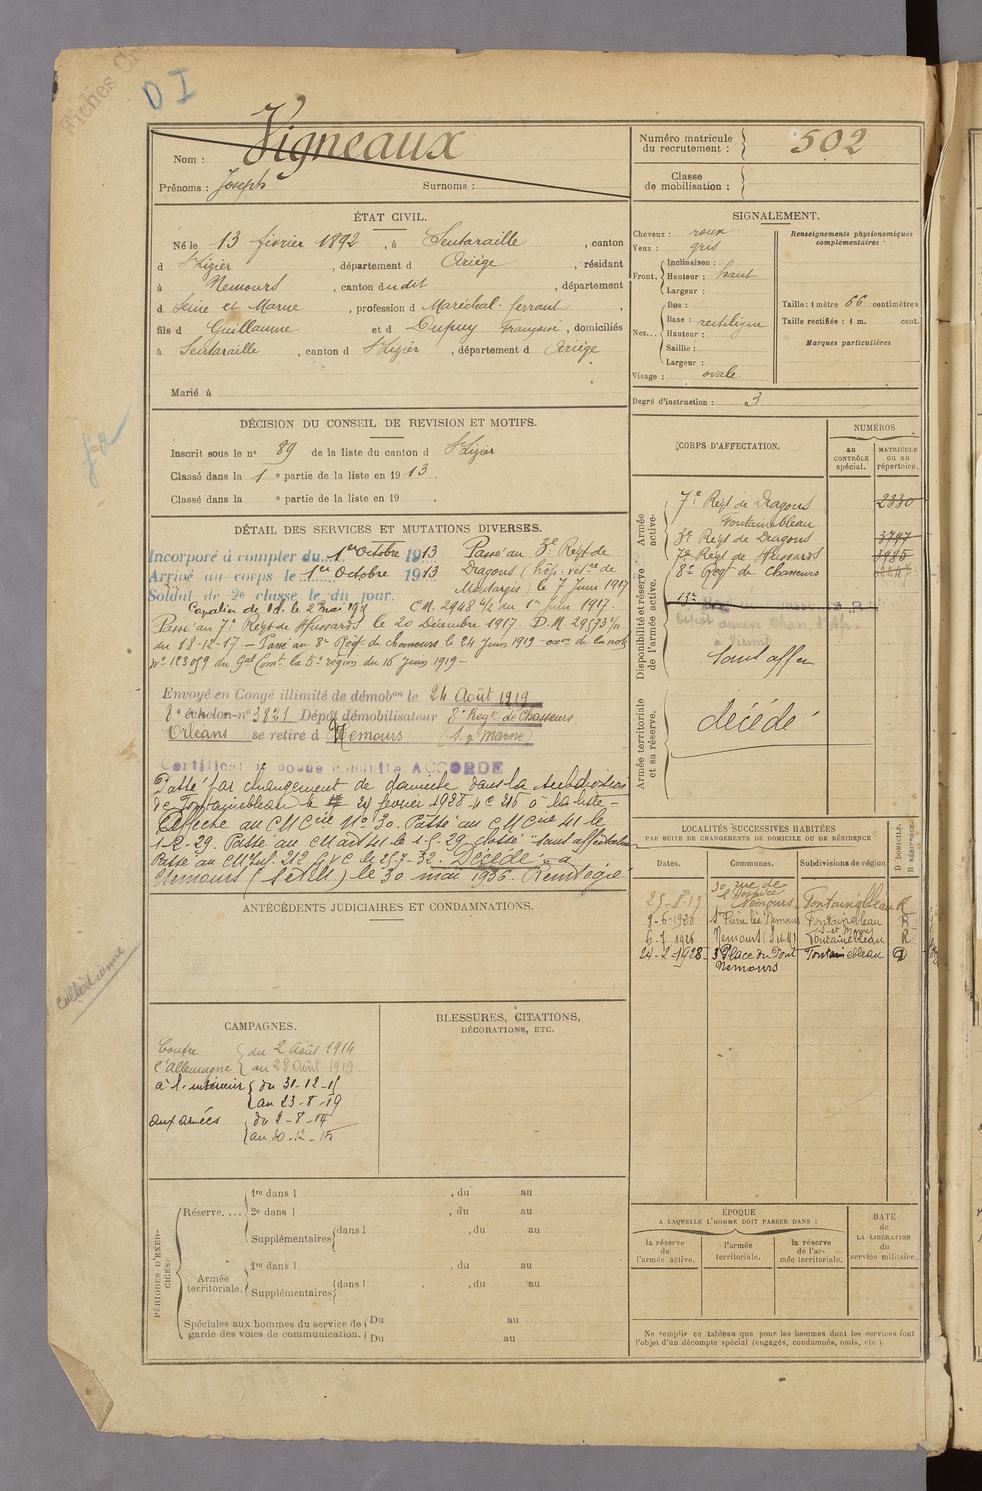 Fiches
D I
Nom : Vigneaux
Prénoms : Joseph Surnoms :
Numéro matricule du recrutement : 502
Classe de mobilisation :
ÉTAT CIVIL.
Né le 13 février 1892, à Sentaraille, canton
d St Lizier, département d Ariège, résidant
à Nemours, canton dudit, département
d Seine et Marne, profession d Maréchal-ferrant,
fils d Guillaume et d Dupuy Françoise, domiciliés
à Sentaraille, canton d St Lizier, département d Ariège
Marié à
SIGNALEMENT.
Cheveux : roux
Yeux : gris
Front. Inclinaison :
Hauteur : haut
Largeur :
Nez... Dos :
Base : rectiligne
Hauteur :
Saillie :
Largeur :
Visage : ovale
Renseignements physionomiques complémentaires
Taille : 1 mètre 66 centimètres
Taille rectifiée : 1 m. cent.
Marques particulières
Degré d'instruction : 3
DÉCISION DU CONSEIL DE REVISION ET MOTIFS.
Inscrit sous le n° 89 de la liste du canton d St Lizier
Classé dans la 1 e partie de la liste en 1913.
Classé dans la e partie de la liste en 19 .
DÉTAIL DES SERVICES ET MUTATIONS DIVERSES.
Incorporé à compter du 1er Octobre 1913
Arrivé au corps le 1er Octobre 1913
Soldat de 2e classe le dit jour.
Passé au 3e Régt de
Dragons (hôp. vétre de
Montargis) le 7 Juin 1917
CM. 2948 du 1er Juin 1917.
Passé au 7e Régt de Hussards le 20 Décembre 1917. D.M. 29173
du 18-12-17 – Passé au 8e Régt de chasseurs le 24 Juin 1919 de la note
n° 123059 du Gal Comt la 5e région du 16 Juin 1919 –
Envoyé en Congé illimité de démobon le 24 Août 1919
8e échelon-n° 3821 Dépôt démobilisateur 8e Régt de Chasseurs
Orléans se retire à Nemours (S. & Marne)
Certificat de bonne conduite ACCORDE
Passé par changement de domicile dans la subdivision
de Fontainebleau le 24 février 1928 n° 215 à la liste –
Affecté au CM Cie N° 30. Passé au CM Cie 41 le
Passé au le 1-5-29 classé "sans affectation
Passé au 212 GVC le 25-7-32. Décédé à
Nemours (S et M) le 30 mai 1936.
CORPS D'AFFECTATION.
NUMÉROS
AU CONTRÔLE spécial.
MATRICULE OU AU répertoire.
Armée active.
7e Régt de Dragons 2330
Fontainebleau
3e Régt de Dragons 3797
7e Régt de Hussards
8e Régt de Chasseurs
Disponibilité et réserve de l'armée active.
Sans affon
Armée territoriale et sa réserve.
décédé
LOCALITÉS SUCCESSIVES HABITÉES
PAR SUITE DE CHANGEMENTS DE DOMICILE OU DE RÉSIDENCE
Dates. Communes. Subdivisions de région D DOMICILE. R RÉSIDENCE.
30 rue de l'Hospice Nemours – Fontainebleau R
8-6-1920 St Pierre lès Nemours Fontainebleau R
6-7 1926 Nemours (S et M) Fontainebleau R
24-2-1928 3 Place du Pont Nemours Fontainebleau D
ANTÉCÉDENTS JUDICIAIRES ET CONDAMNATIONS.
CAMPAGNES.
Contre l'Allemagne du 2 Août 1914
au 23 Août 1919
à l'intérieur du 31-12-15
au 23-8-19
aux armées du 2-8-14
au 30-12-15
BLESSURES, CITATIONS,
DÉCORATIONS, ETC.
PÉRIODES D'EXERCICES.
Réserve.... 1re dans l , du au
2e dans l , du au
Supplémentaires dans l , du au
Armée territoriale. 1re dans l , du au
Supplémentaires dans l , du au
Spéciales aux hommes du service de garde des voies de communication. Du au
Du au
ÉPOQUE
A LAQUELLE L'HOMME DOIT PASSER DANS :
la réserve de l'armée active.
l'armée territoriale.
la réserve de l'armée territoriale.
DATE de LA LIBÉRATION du service militaire.
Ne remplir ce tableau que pour les hommes dont les services font
l'objet d'un décompte spécial (engagés, condamnés, omis, etc.).